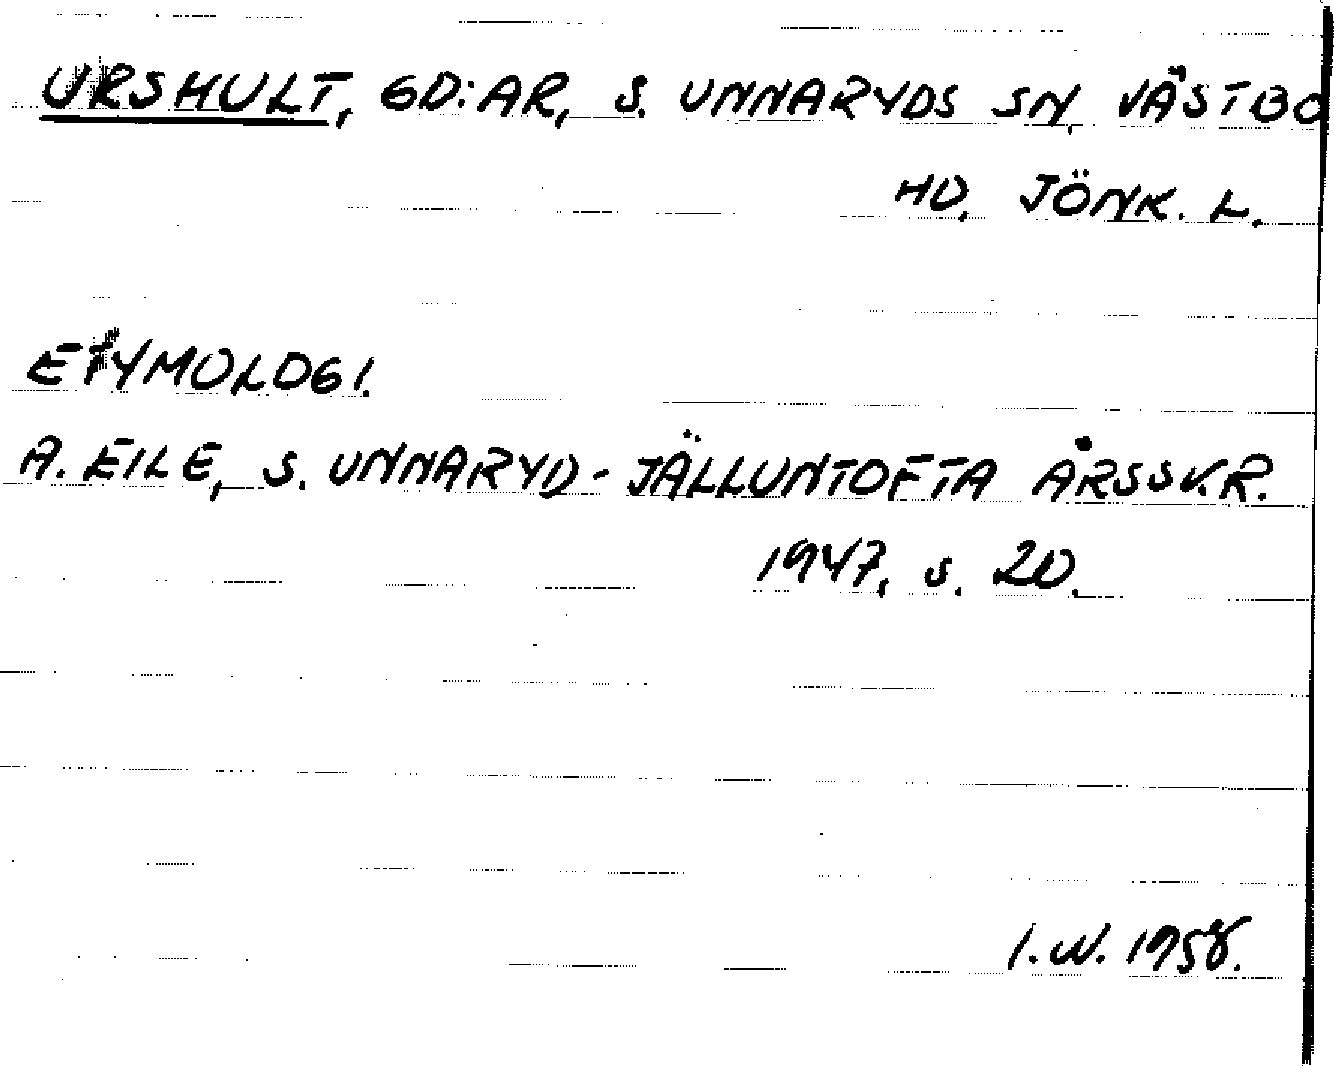 URSHULT, GD:AR, S. UNNARYDS SN, VÄSTBO
HD, JÖNK. L.
ETYMOLOGI.
A. EILE, S. UNNARYD - JÄLLUNTOFTA ÅRSSKR.
1947, s. 20.
I.W. 1958.